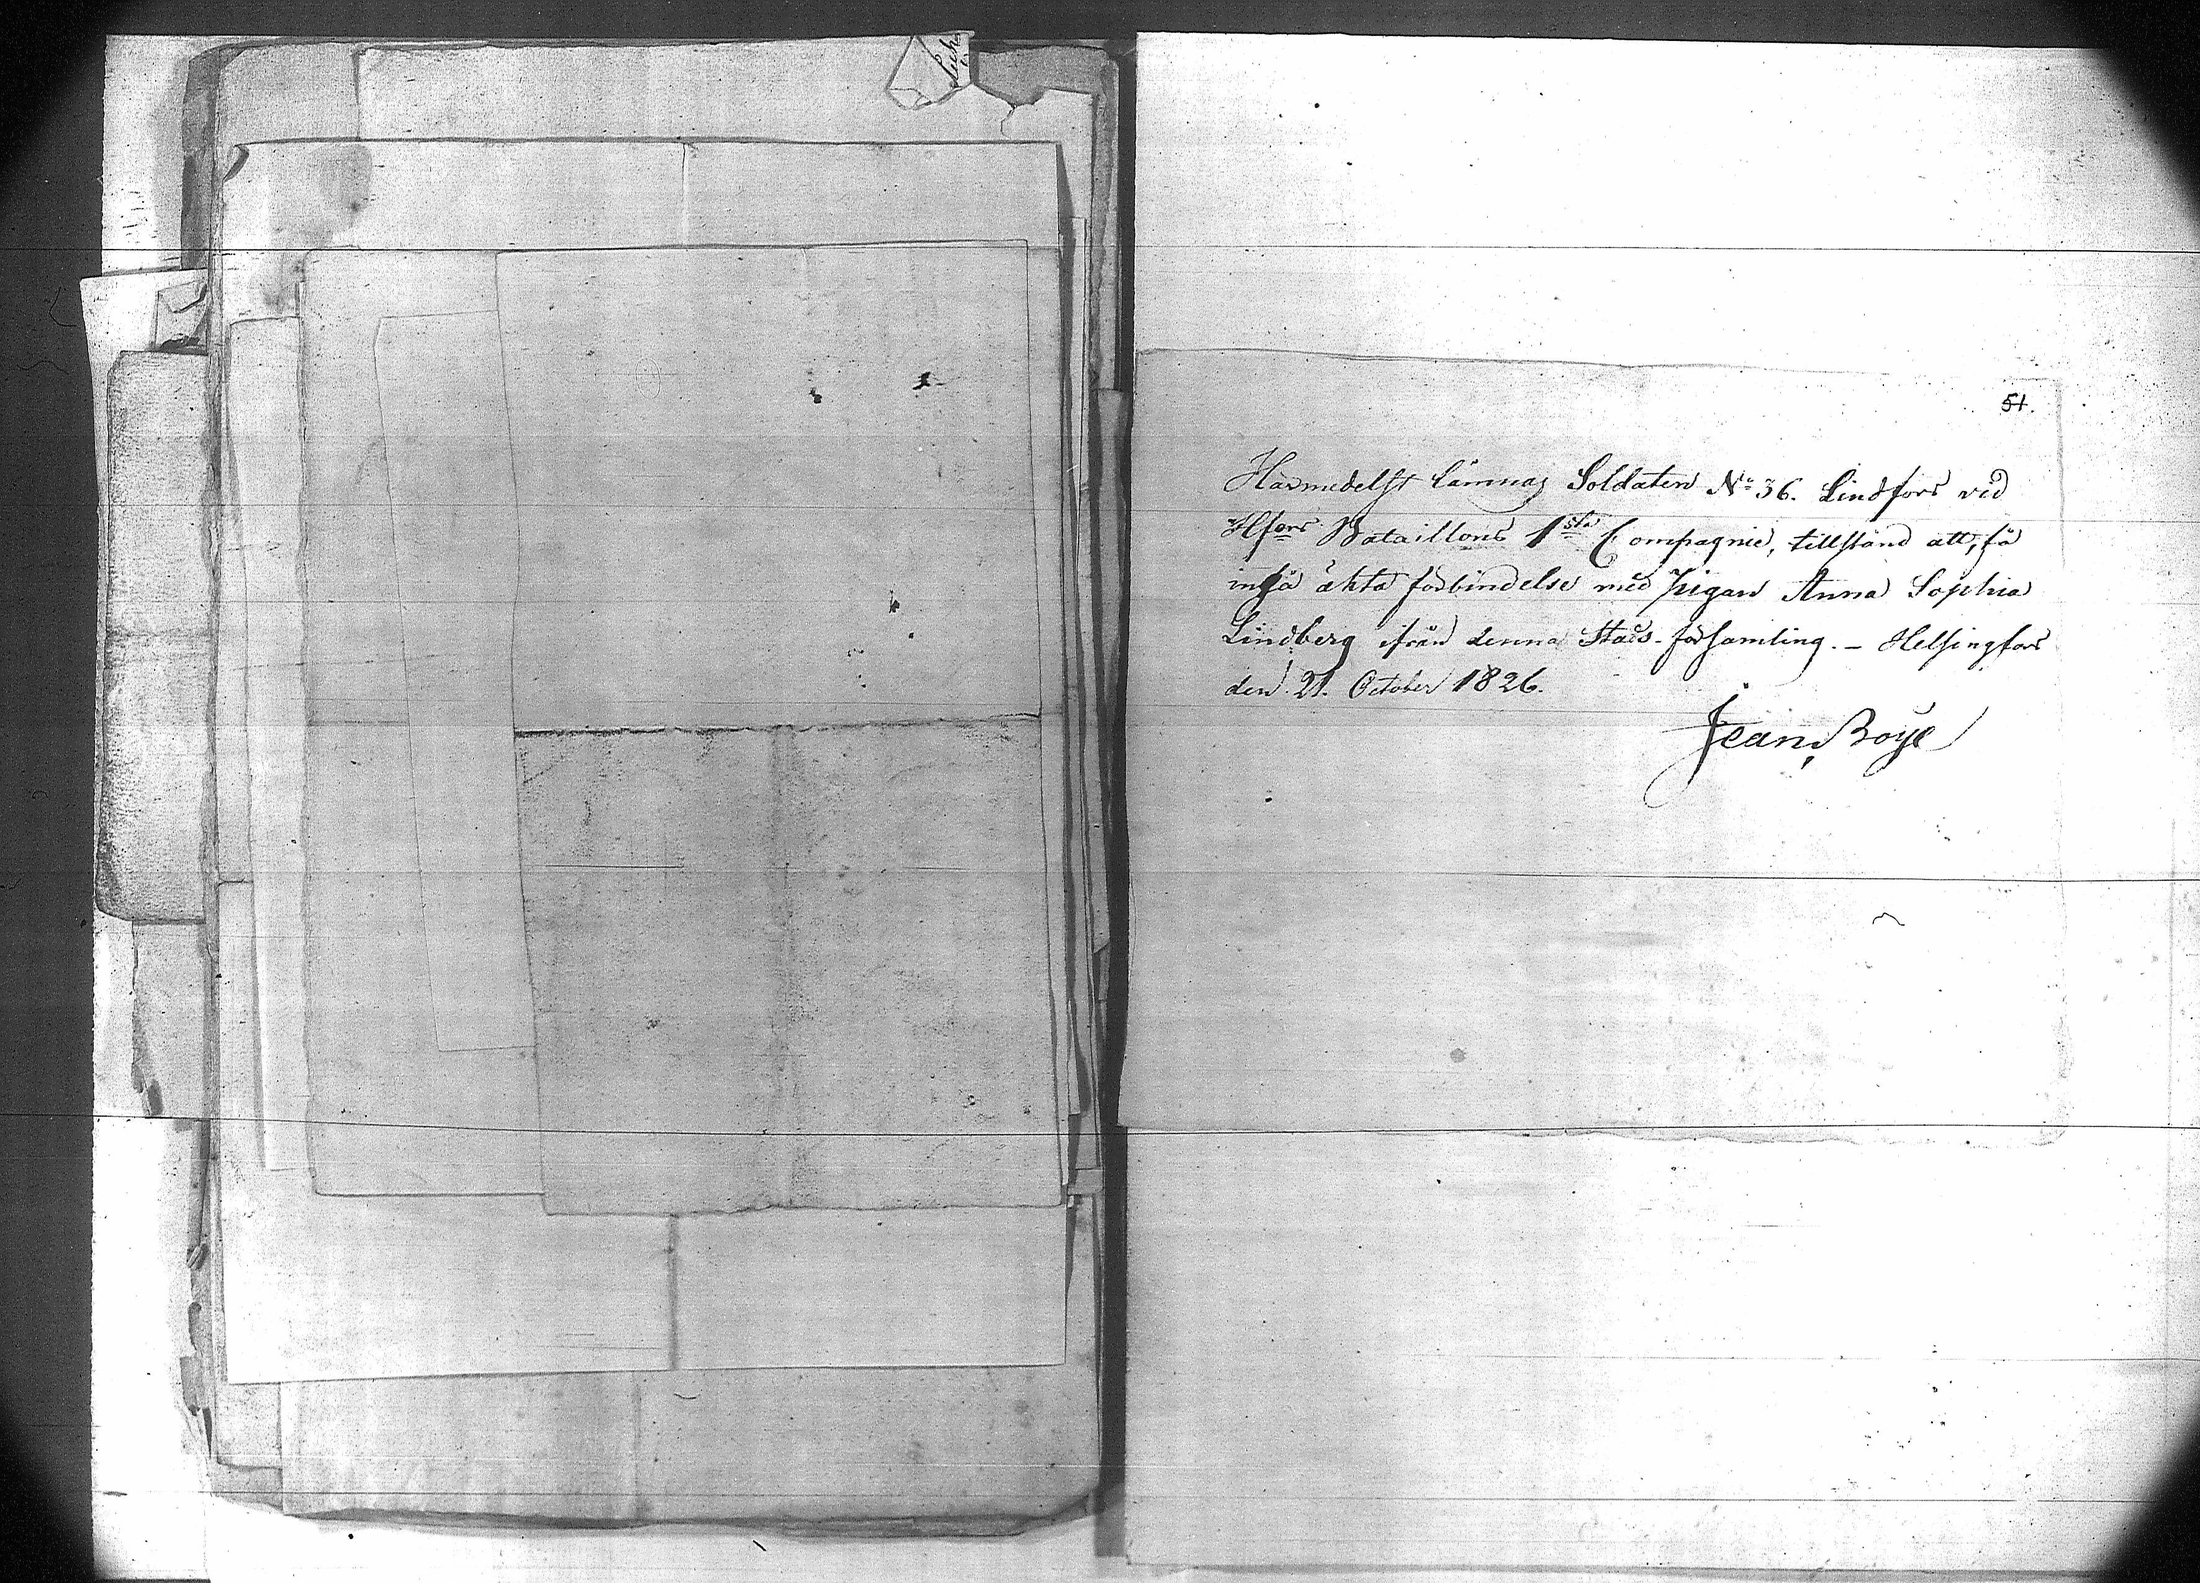 51.
Härmedelst lämnas Soldaten No 36. Lindfors vid
Hfors Bataillons 1sta Compagnie, tillstånd att, få
ingå ächta förbindelse med pigan Anna Sophia
Lindberg ifrån denna Stads-församling. – Helsingfors
den 21. October 1826.
Jean Boije